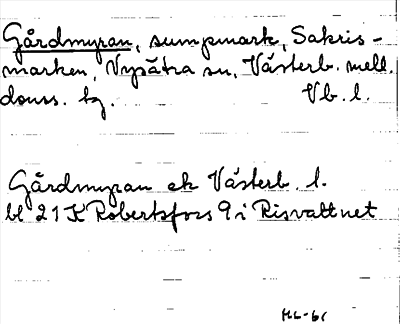 Gårdmyran, sumpmark, Sakris-
marken, Nysätra sn, Västerb. mell.
douss. bg. Vb. l.
Gårdmyran ek Västerb. l.
bl 21 K Robertsfors 9 i Risvattnet
HL-61